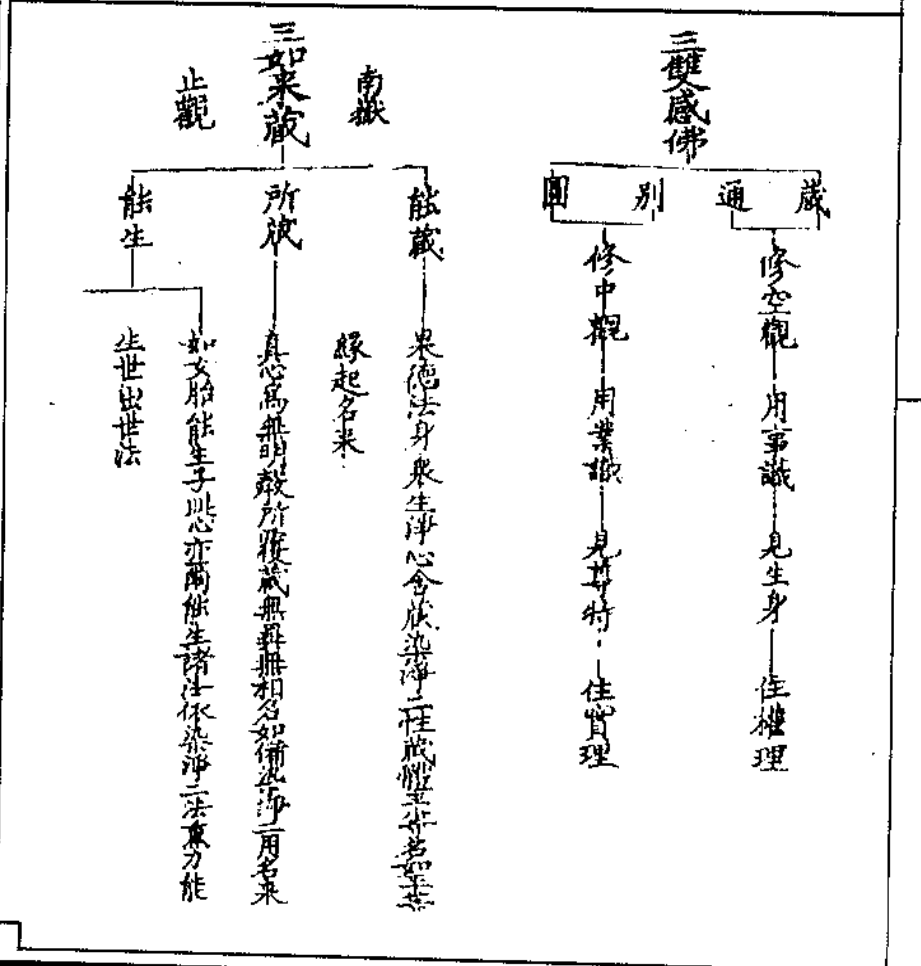 三雙感佛
藏
通
別
圓
修空觀
用事識
見生身
住權理
修中觀
用業識
見尊特
住實理
南嶽
三如来藏
止觀
能藏
果德法身衆生淨心含藏染淨二性藏體平等名如平等
縁起名来
所藏
真心爲無明㲉所覆藏無異無相名如備染淨二用名来
能生
如女胎能生子此心亦爾能生諸法依染淨二法熏力能
生世出世法